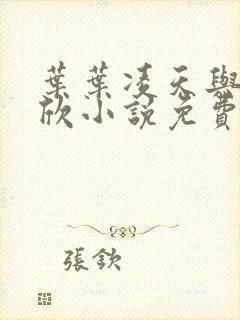 葉葉凌天與
欣小説免費
張欽